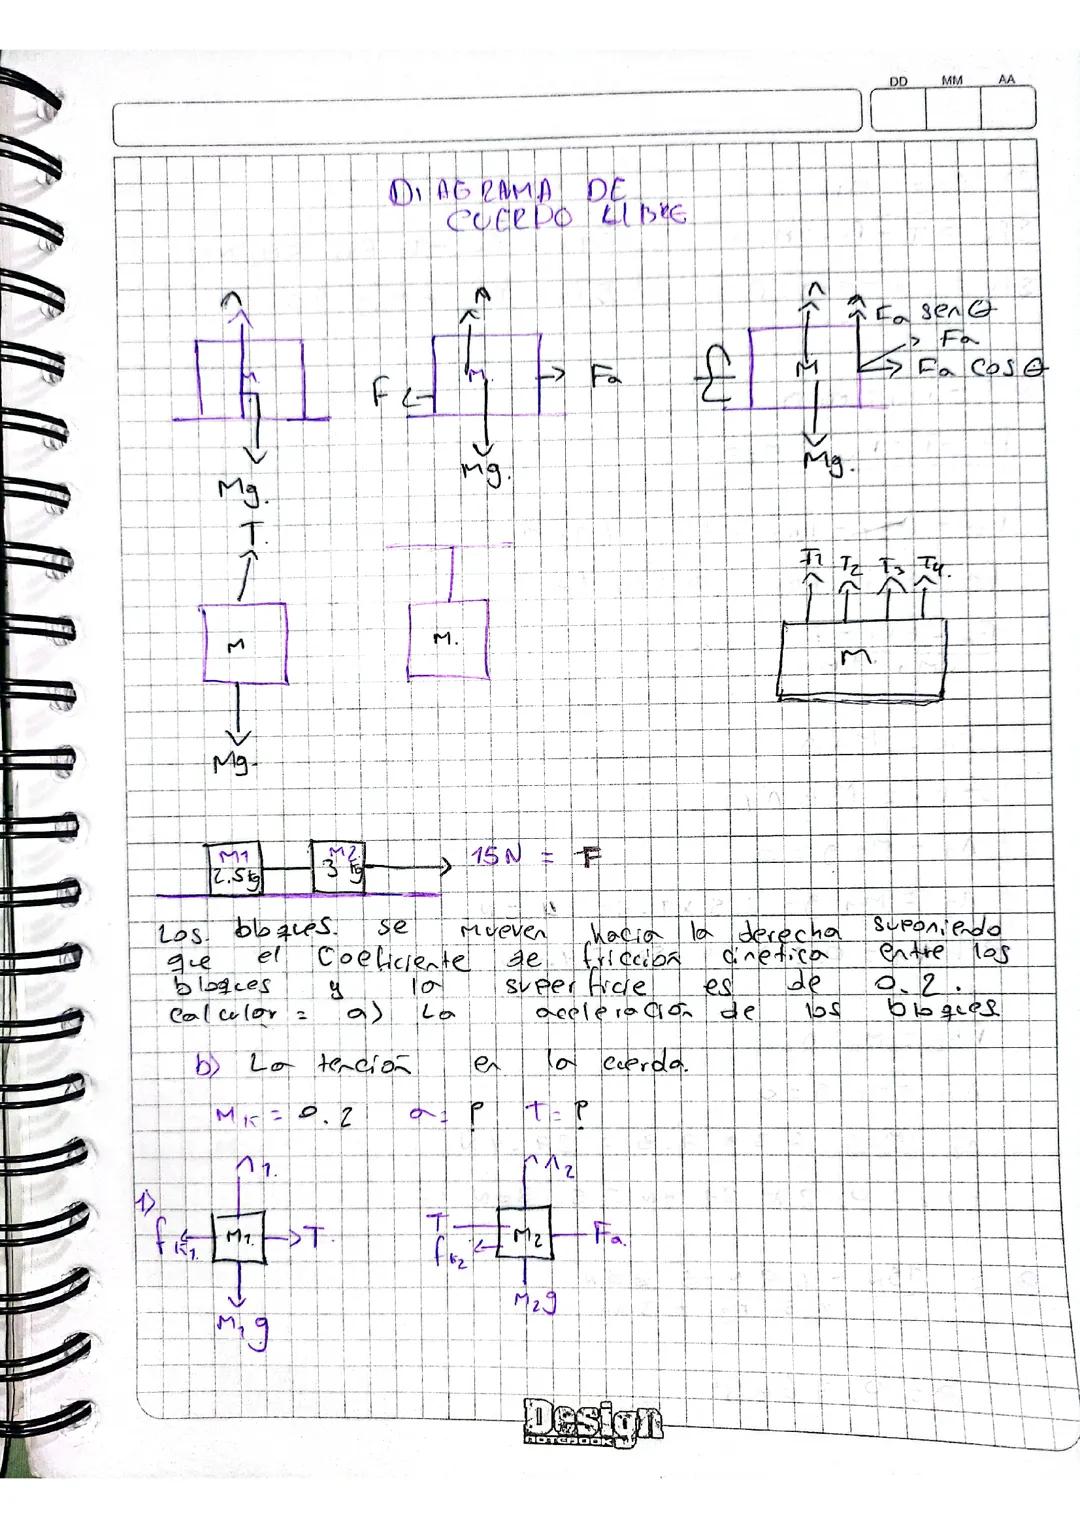 DD MM AA
DIAGRAMA DE
CUERPO LIBRE
Fa senθ
Fa
Fa cosθ
M
M.
M
F
Fa
f
Mg.
Mg.
Mg.
T.
T1 T2 T3 T4.
M
M.
M
Mg.
M1 M2
2.5kg 3 kg
15N = F
Los bloques. se mueven hacia la derecha suponiendo
que el Coeficiente de friccion cinetica entre los
bloques y la superficie es de 0.2.
calcular = a) La aceleración de los bloques
b) La tención en la cuerda.
Mk = 0.2 a = ? T = ?
1)
n1. n2
fk1. M1. T. T fk2 M2 Fa.
M1g M2g
Design
NOTEBOOK